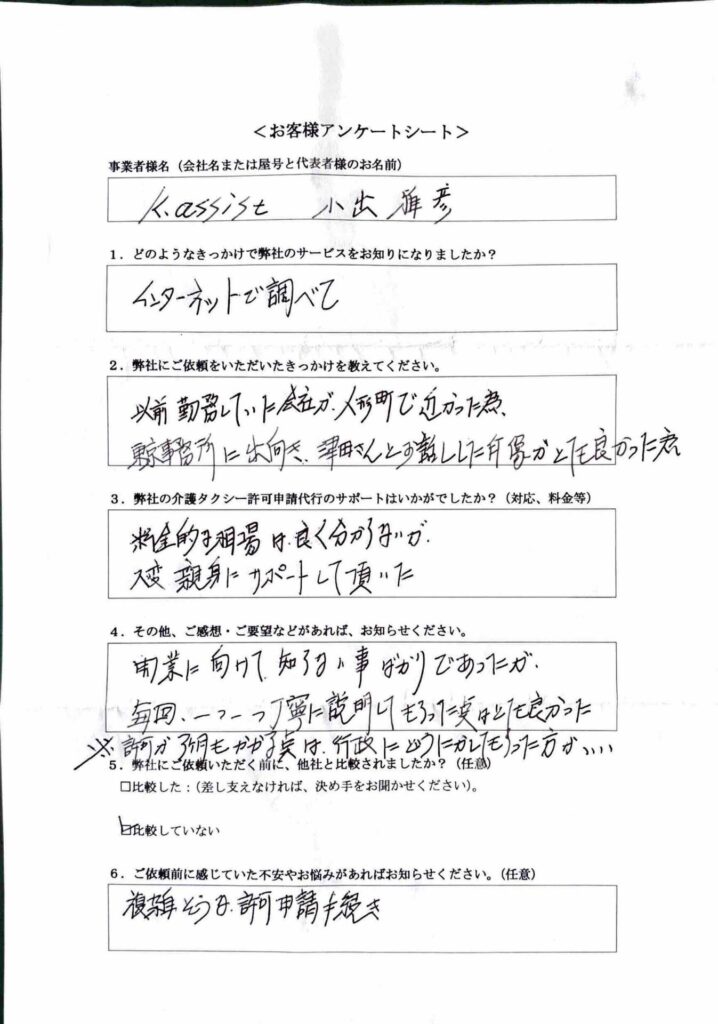 ＜お客様アンケートシート＞
事業者様名（会社名または屋号と代表者様のお名前）
K.assist 小出 雅彦
１．どのようなきっかけで弊社のサービスをお知りになりましたか？
インターネットで調べて
２．弊社にご依頼をいただいたきっかけを教えてください。
以前勤務していた会社が、人形町で近かった為、
東京事務所に出向き、津田さんとお話しした印象がとても良かった為
３．弊社の介護タクシー許可申請代行のサポートはいかがでしたか？（対応、料金等）
料金的な相場は、良く分からないが、
大変 親身にサポートして頂いた
４．その他、ご感想・ご要望などがあれば、お知らせください。
開業に向けて、知らない事ばかりであったが、
毎回、一つ一つ丁寧に説明してもらった点はとても良かった
※ 許可が3ヶ月もかかる点は、行政にどうにかしてもらった方が、、、
５．弊社にご依頼いただく前に、他社と比較されましたか？（任意）
□比較した：（差し支えなければ、決め手をお聞かせください）。
☑比較していない
６．ご依頼前に感じていた不安やお悩みがあればお知らせください。（任意）
複雑そうな、許可申請手続き